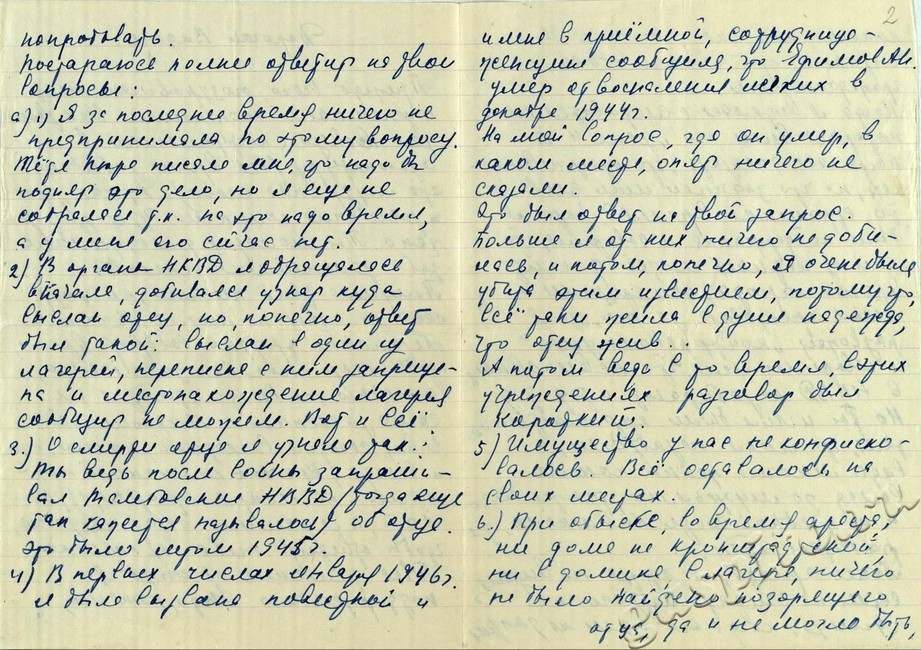 попробовать.
Постараюсь полнее ответить на твои
вопросы:
а) 1) Я за последнее время ничего не
предпринимала по этому вопросу.
Тётя Нюра писала мне, что надо бы
поднять это дело, но я еще не
собралась т.к. на это надо время,
а у меня его сейчас нет.
2) В органы НКВД я обращалась
вначале, добивался узнать куда
выслан отец, но, конечно, ответ
был такой: выслан в один из
лагерей, переписка с ним запреще-
на и местонахождение лагеря
сообщить не можем. Вот и всё.
3.) О смерти отца я узнала так:
Ты ведь после войны запраши-
вал НКВД (тогда еще
так кажется называлось) об отце.
Это было летом 1945г.
4) В первых числах января 1946г.
я была вызвана повесткой и
2
и мне в приёмной, сотрудница-
женщина сообщила, что Ефимов А.И.
умер от воспаления легких в
декабре 1944г.
На мой вопрос, где он умер, в
каком месте, опять ничего не
сказали.
Это был ответ на твой запрос.
Больше я от них ничего не доби-
лась, и потом, конечно, я очень была
убита этим известием, потому что
всё таки жила в душе надежда,
что отец жив.
А потом ведь в то время, в этих
учреждениях разговор был
короткий.
5) Имущество у нас не конфиско-
валось. Всё оставалось на
своих местах.
6.) При обыске, во время ареста,
ни дома не кронштадтской
ни в домике, в лагере, ничего
не было найдено позорящего
отца, да и не могло быть,